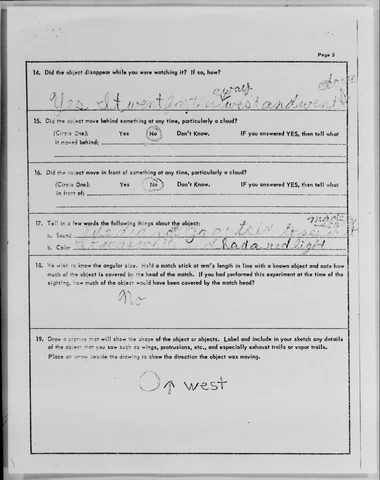 Page 3
14. Did the object disappear while you were watching it? If so, how?
away
Yes it went west and went
15. Did the object move behind something at any time, particularly a cloud?
(Circle One): Yes No Don't Know. IF you answered YES, then tell what
it moved behind:
16. Did the object move in front of something at any time, particularly a cloud?
(Circle One): Yes No Don't Know. IF you answered YES, then tell what
in front of:
17. Tell in a few words the following things about the object:
a. Sound
b. Color had a red light
18. We wish to know the angular size. Hold a match stick at arm's length in line with a known object and note how
much of the object is covered by the head of the match. If you had performed this experiment at the time of the
sighting, how much of the object would have been covered by the match head?
No
19. Draw a picture that will show the shape of the object or objects. Label and include in your sketch any details
of the object that you saw such as wings, protrusions, etc., and especially exhaust trails or vapor trails.
Place an arrow beside the drawing to show the direction the object was moving.
west